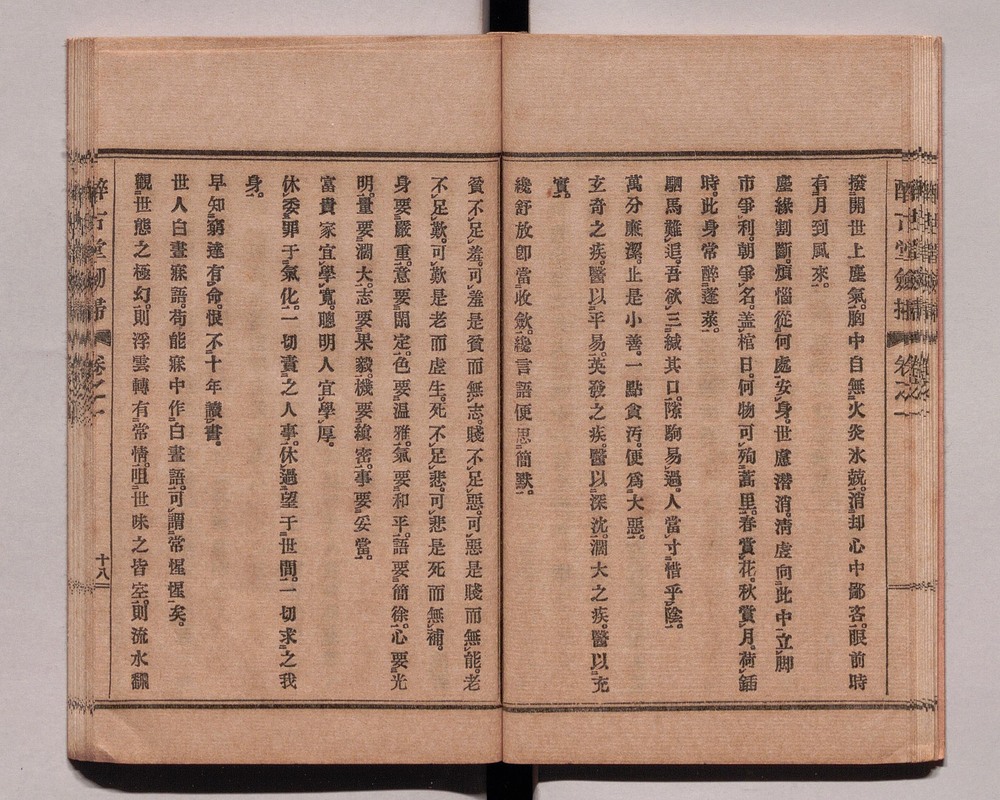 撥開世上塵氣。胸中自無火炎氷兢。消却心中鄙吝。眼前時
有月到風來。
塵緣割斷。煩惱從何處安身。世慮潛消。淸虛向此中立脚
市爭利。朝爭名。盖棺日。何物可殉蒿里。春賞花。秋賞月。荷鍤
時。此身常醉蓬萊。
駟馬難追。吾欲三緘其口。隙駒易過。人當寸惜乎陰。
萬分廉潔。止是小善。一點貪汚。便爲大惡。
玄奇之疾。醫以平易。英發之疾。醫以深沈。濶大之疾。醫以充
實。
纔舒放卽當收斂。纔言語便思簡默。
貧不足羞。可羞是貧而無志。賤不足惡。可惡是賤而無能。老
不足歎。可歎是老而虛生。死不足悲。可悲是死而無補。
身要嚴重。意要閒定。色要温雅。氣要和平。語要簡徐。心要光
明。量要濶大。志要果毅。機要縝密。事要妥當。
富貴家宜學寬。聰明人宜學厚。
休委罪于氣化。一切責之人事。休過望于世間。一切求之我
身。
早知窮達有命。恨不十年讀書。
世人白晝寐語。苟能寐中作白晝語。可謂常惺惺矣。
觀世態之極幻。則浮雲轉有常情。咀世味之皆空。則流水飜
醉古堂劒掃 卷之一
十八